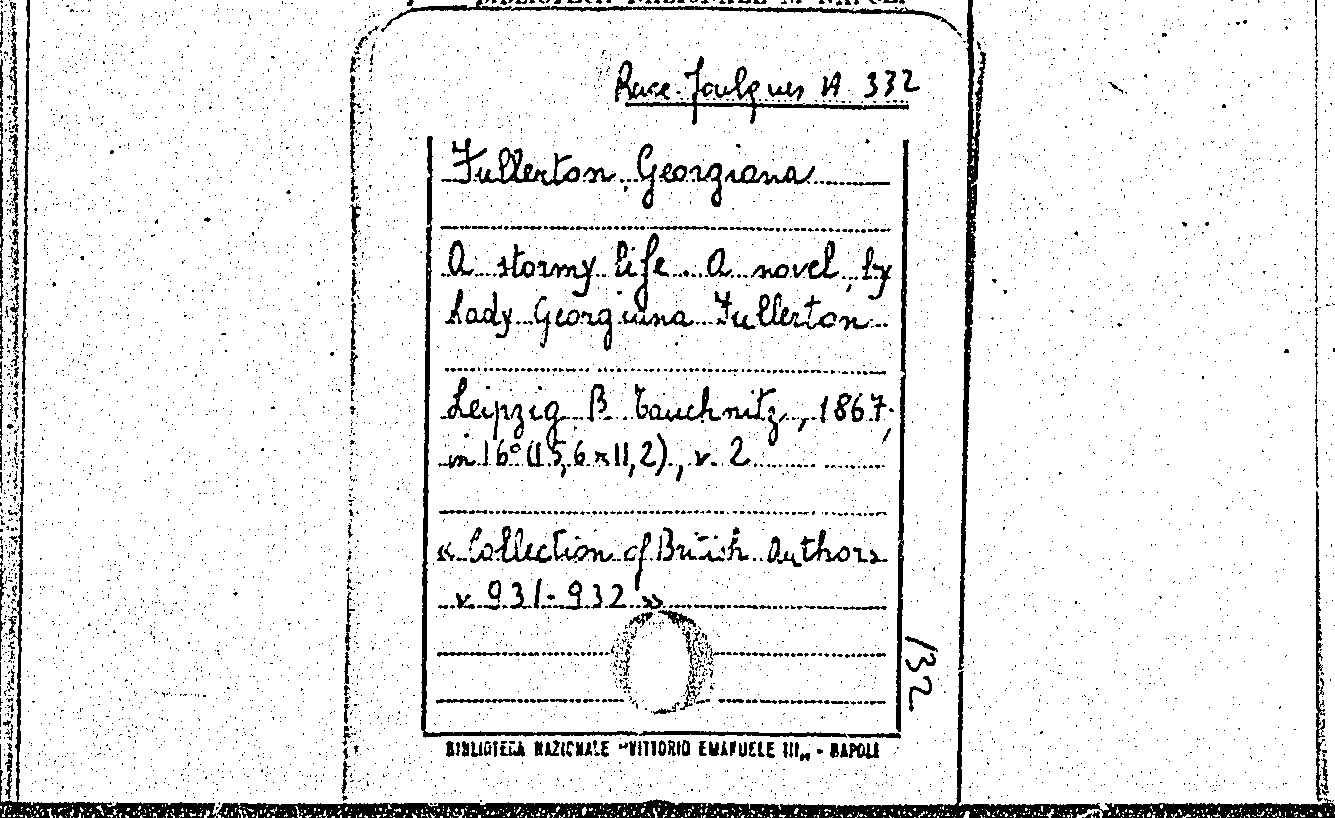 Racc. Foulques A 332
Fullerton, Georgiana
A stormy life. A novel, by
Lady Georgiana Fullerton
Leipzig B Tauchnitz, 1867;
in 16° (15,6 x 11,2), v. 2
« Collection of British Authors
v. 931-932 »
132
BIBLIOTECA NAZIONALE "VITTORIO EMANUELE III„ - NAPOLI